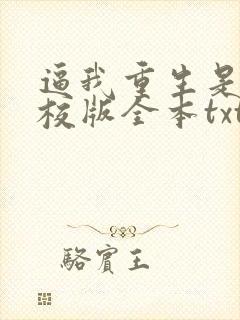 逼我重生是
校版全本txt
骆宾王